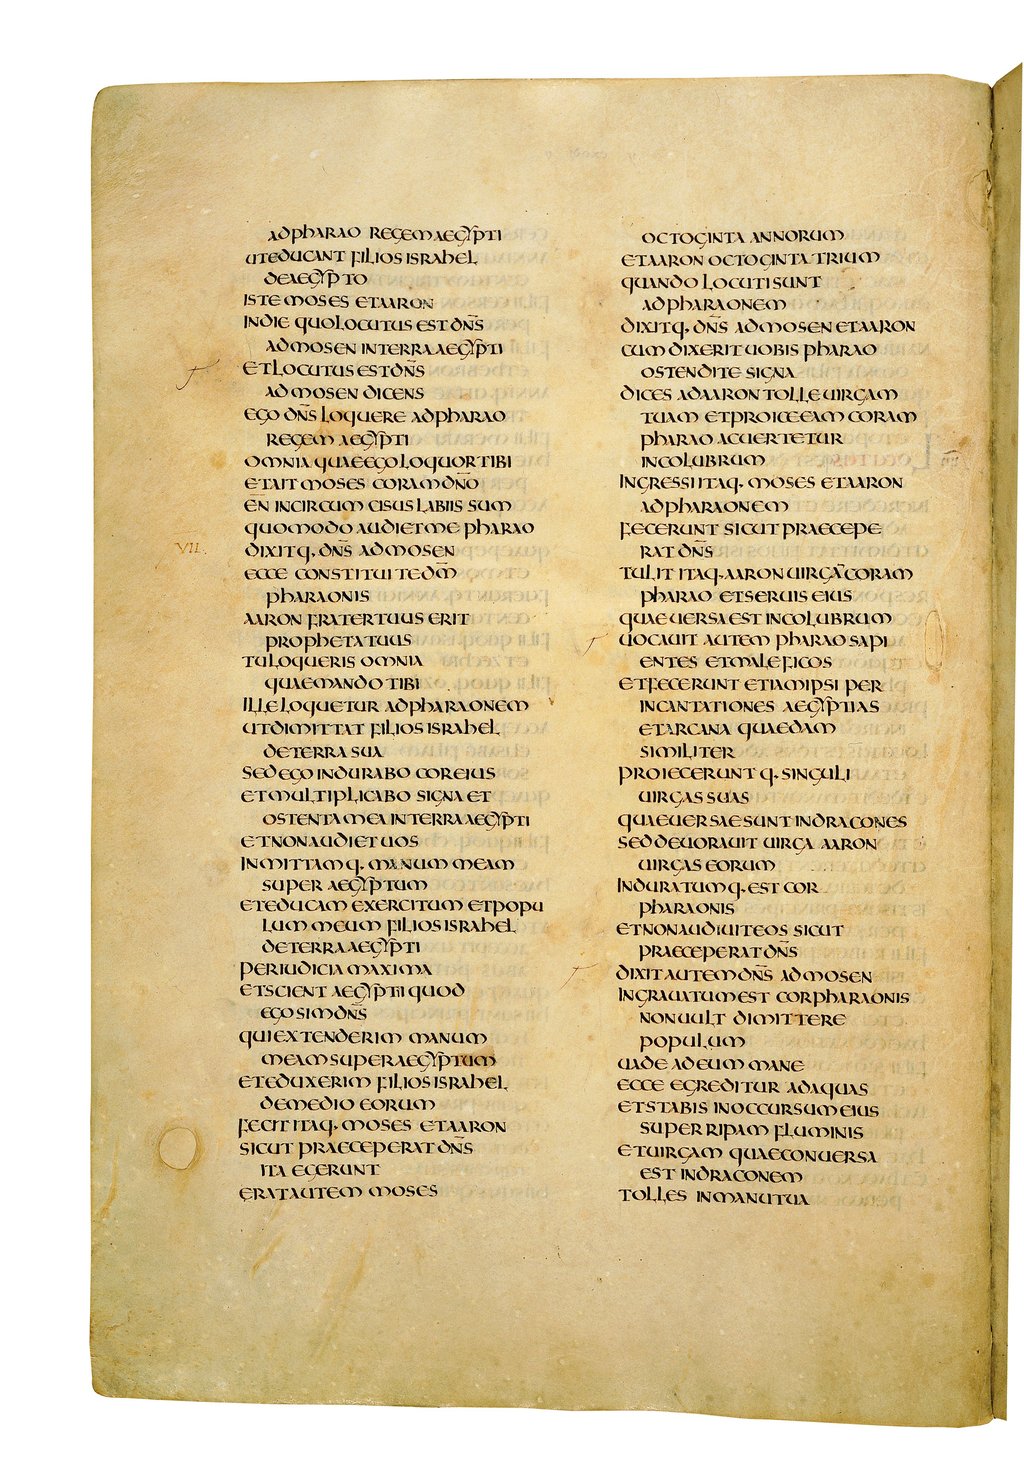 AD PHARAO REGEM AEGYPTI
UT EDUCANT FILIOS ISRAHEL
DE AEGYPTO
ISTE MOSES ET AARON
IN DIE QUO LOCUTUS EST DN̄S
AD MOSEN IN TERRA AEGYPTI
ET LOCUTUS EST DN̄S
AD MOSEN DICENS
EGO DN̄S LOQUERE AD PHARAO
REGEM AEGYPTI
OMNIA QUAE EGO LOQUOR TIBI
ET AIT MOSES CORAM DN̄O
ĒN INCIRCUMCISUS LABIIS SUM
QUOMODO AUDIET ME PHARAO
VII. DIXITQ· DN̄S AD MOSEN
ECCE CONSTITUI TE DM̄
PHARAONIS
AARON FRATER TUUS ERIT
PROPHETA TUUS
TU LOQUERIS OMNIA
QUAE MANDO TIBI
ILLE LOQUETUR AD PHARAONEM
UT DIMITTAT FILIOS ISRAHEL
DE TERRA SUA
SED EGO INDURABO COR EIUS
ET MULTIPLICABO SIGNA ET
OSTENTA MEA IN TERRA AEGYPTI
ET NON AUDIET UOS
INMITTAMQ· MANUM MEAM
SUPER AEGYPTUM
ET EDUCAM EXERCITUM ET POPU
LUM MEUM FILIOS ISRAHEL
DE TERRA AEGYPTI
PER IUDICIA MAXIMA
ET SCIENT AEGYPTII QUOD
EGO SIM DN̄S
QUI EXTENDERIM MANUM
MEAM SUPER AEGYPTUM
ET EDUXERIM FILIOS ISRAHEL
DE MEDIO EORUM
FECIT ITAQ· MOSES ET AARON
SICUT PRAECEPERAT DN̄S
ITA EGERUNT
ERAT AUTEM MOSES
OCTOGINTA ANNORUM
ET AARON OCTOGINTA TRIUM
QUANDO LOCUTI SUNT
AD PHARAONEM
DIXITQ· DN̄S AD MOSEN ET AARON
CUM DIXERIT UOBIS PHARAO
OSTENDITE SIGNA
DICES AD AARON TOLLE UIRGAM
TUAM ET PROICE EAM CORAM
PHARAO AC UERTETUR
IN COLUBRUM
INGRESSI ITAQ· MOSES ET AARON
AD PHARAONEM
FECERUNT SICUT PRAECEPE
RAT DN̄S
TULIT ITAQ· AARON UIRGĀ CORAM
PHARAO ET SERUIS EIUS
QUAE UERSA EST IN COLUBRUM
UOCAUIT AUTEM PHARAO SAPI
ENTES ET MALEFICOS
ET FECERUNT ETIAM IPSI PER
INCANTATIONES AEGYPTIAS
ET ARCANA QUAEDAM
SIMILITER
PROIECERUNTQ· SINGULI
UIRGAS SUAS
QUAE UERSAE SUNT IN DRACONES
SED DEUORAUIT UIRGA AARON
UIRGAS EORUM
INDURATUMQ· EST COR
PHARAONIS
ET NON AUDIUIT EOS SICUT
PRAECEPERAT DN̄S
DIXIT AUTEM DN̄S AD MOSEN
INGRAUATUM EST COR PHARAONIS
NON UULT DIMITTERE
POPULUM
UADE AD EUM MANE
ECCE EGREDITUR AD AQUAS
ET STABIS IN OCCURSUM EIUS
SUPER RIPAM FLUMINIS
ET UIRGAM QUAE CONUERSA
EST IN DRACONEM
TOLLES IN MANU TUA